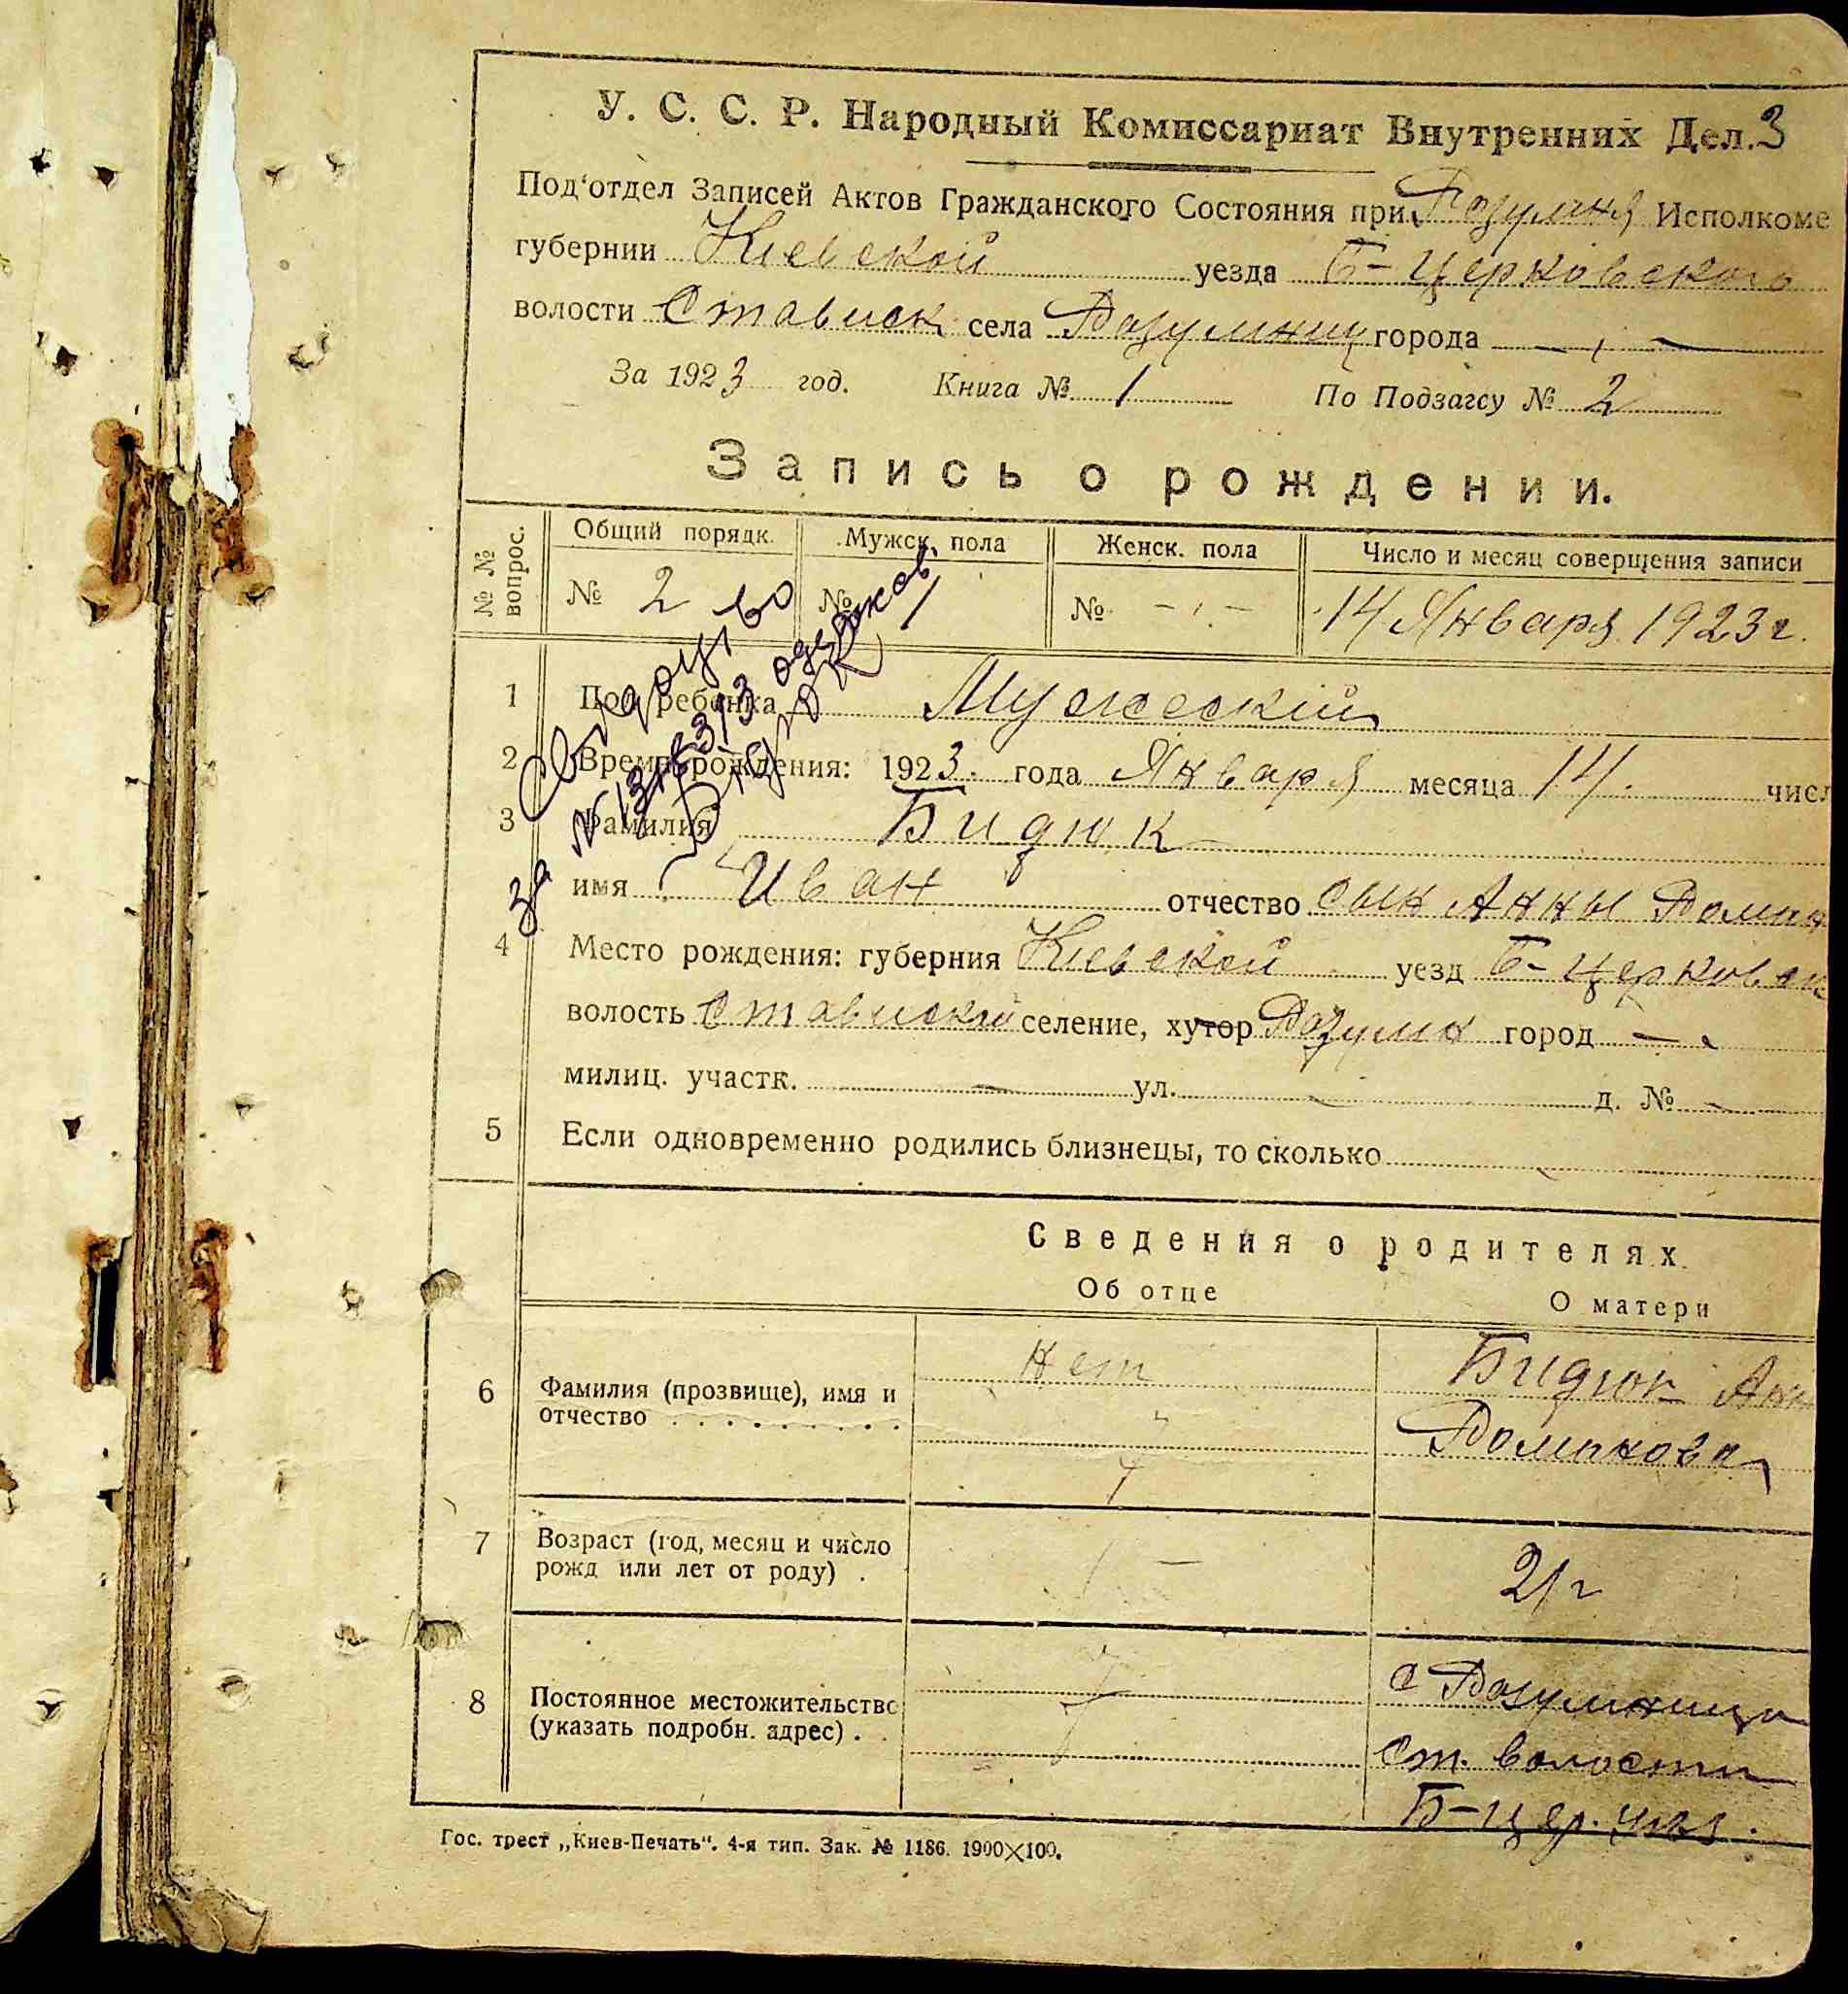 У. С. С. Р. Народный Комиссариат Внутренних Дел. 3
Под'отдел Записей Актов Гражданского Состояния при Исполкоме
губернии Киевской уезда Б-Церковского
волости Стависк села Розумниц города —
За 1923 год. Книга № 1 По Подзагсу № 2
Запись о рождении.
№ № вопрос. Общий порядк. Мужск. пола Женск. пола Число и месяц совершения записи
№ 2 № 1 № - - 14 Января 1923 г.
1 Пол ребенка Мужеский
2 Время рождения: 1923 года Января месяца 14. числ
3 Фамилия Бидюк
имя Иван отчество сын Анны Роман
4 Место рождения: губерния Киевской уезд Б-Церковск
волость Ставиской селение, хутор Розумн город —
милиц. участк. — ул. — д. № —
5 Если одновременно родились близнецы, то сколько —
Сведения о родителях.
Об отце О матери
6 Фамилия (прозвище), имя и отчество нет Бидюк Анн
Романова
7 Возраст (год, месяц и число рожд или лет от роду) . — 21 г
8 Постоянное местожительство (указать подробн. адрес) . с Розумница
Ст. волости
Б-Цер.
Гос. трест „Киев-Печать“. 4-я тип. Зак. № 1186. 1900×100.